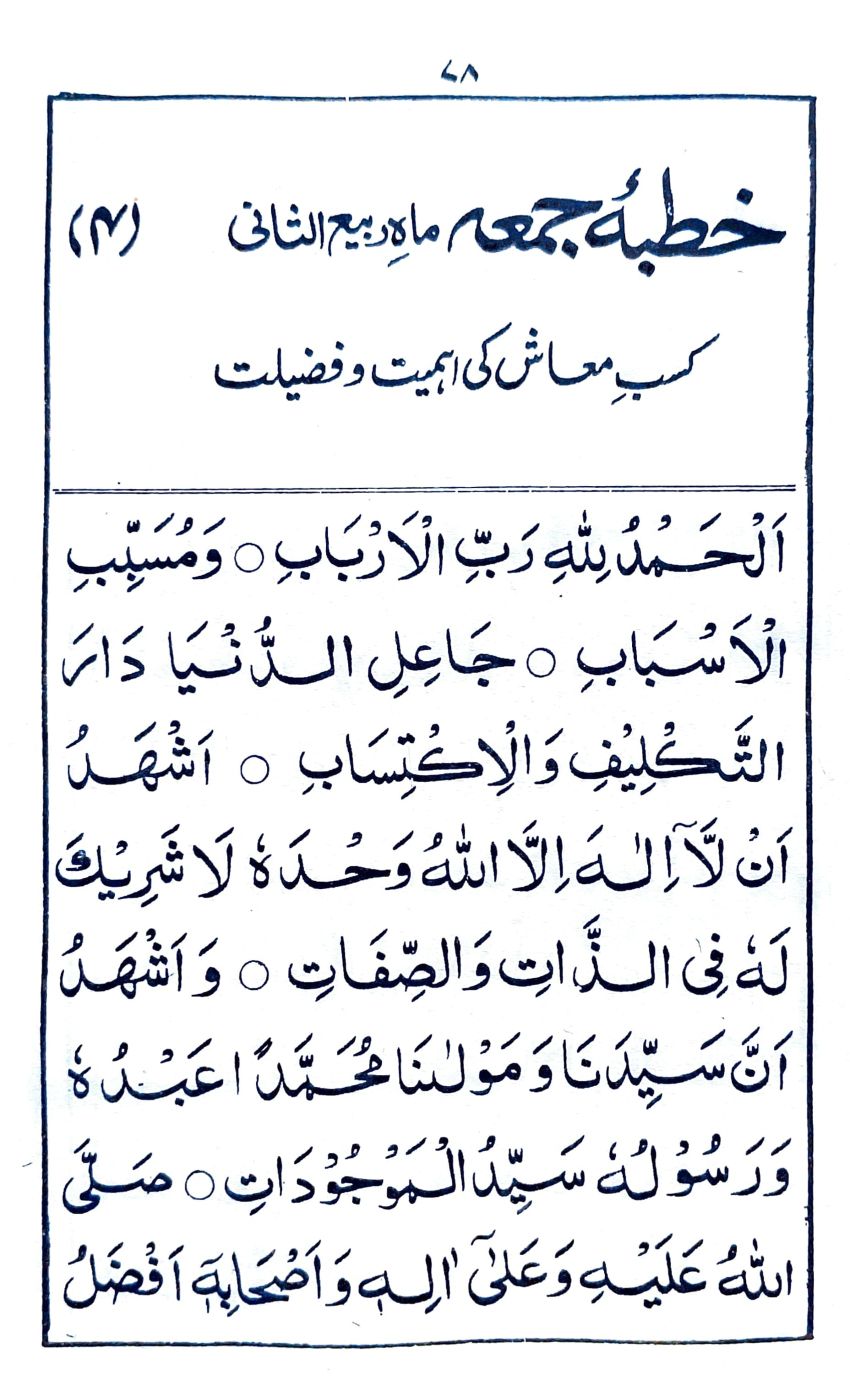 ۷۸
خطبۂ جمعہ ماہِ ربیع الثانی (۴)
کسبِ معاش کی اہمیت و فضیلت
اَلْحَمْدُ لِلّٰهِ رَبِّ الْاَرْبَابِ ○ وَمُسَبِّبِ
الْاَسْبَابِ ○ جَاعِلِ الدُّنْيَا دَارَ
التَّكْلِيْفِ وَالْاِكْتِسَابِ ○ اَشْهَدُ
اَنْ لَّآ اِلٰهَ اِلَّا اللّٰهُ وَحْدَهٗ لَا شَرِيْكَ
لَهٗ فِى الذَّاتِ وَالصِّفَاتِ ○ وَاَشْهَدُ
اَنَّ سَيِّدَنَا وَمَوْلٰىنَا مُحَمَّدًا عَبْدُهٗ
وَرَسُوْلُهٗ سَيِّدُ الْمَوْجُوْدَاتِ ○ صَلَّى
اللّٰهُ عَلَيْهِ وَعَلٰٓى اٰلِهٖ وَاَصْحَابِهٖٓ اَفْضَلُ